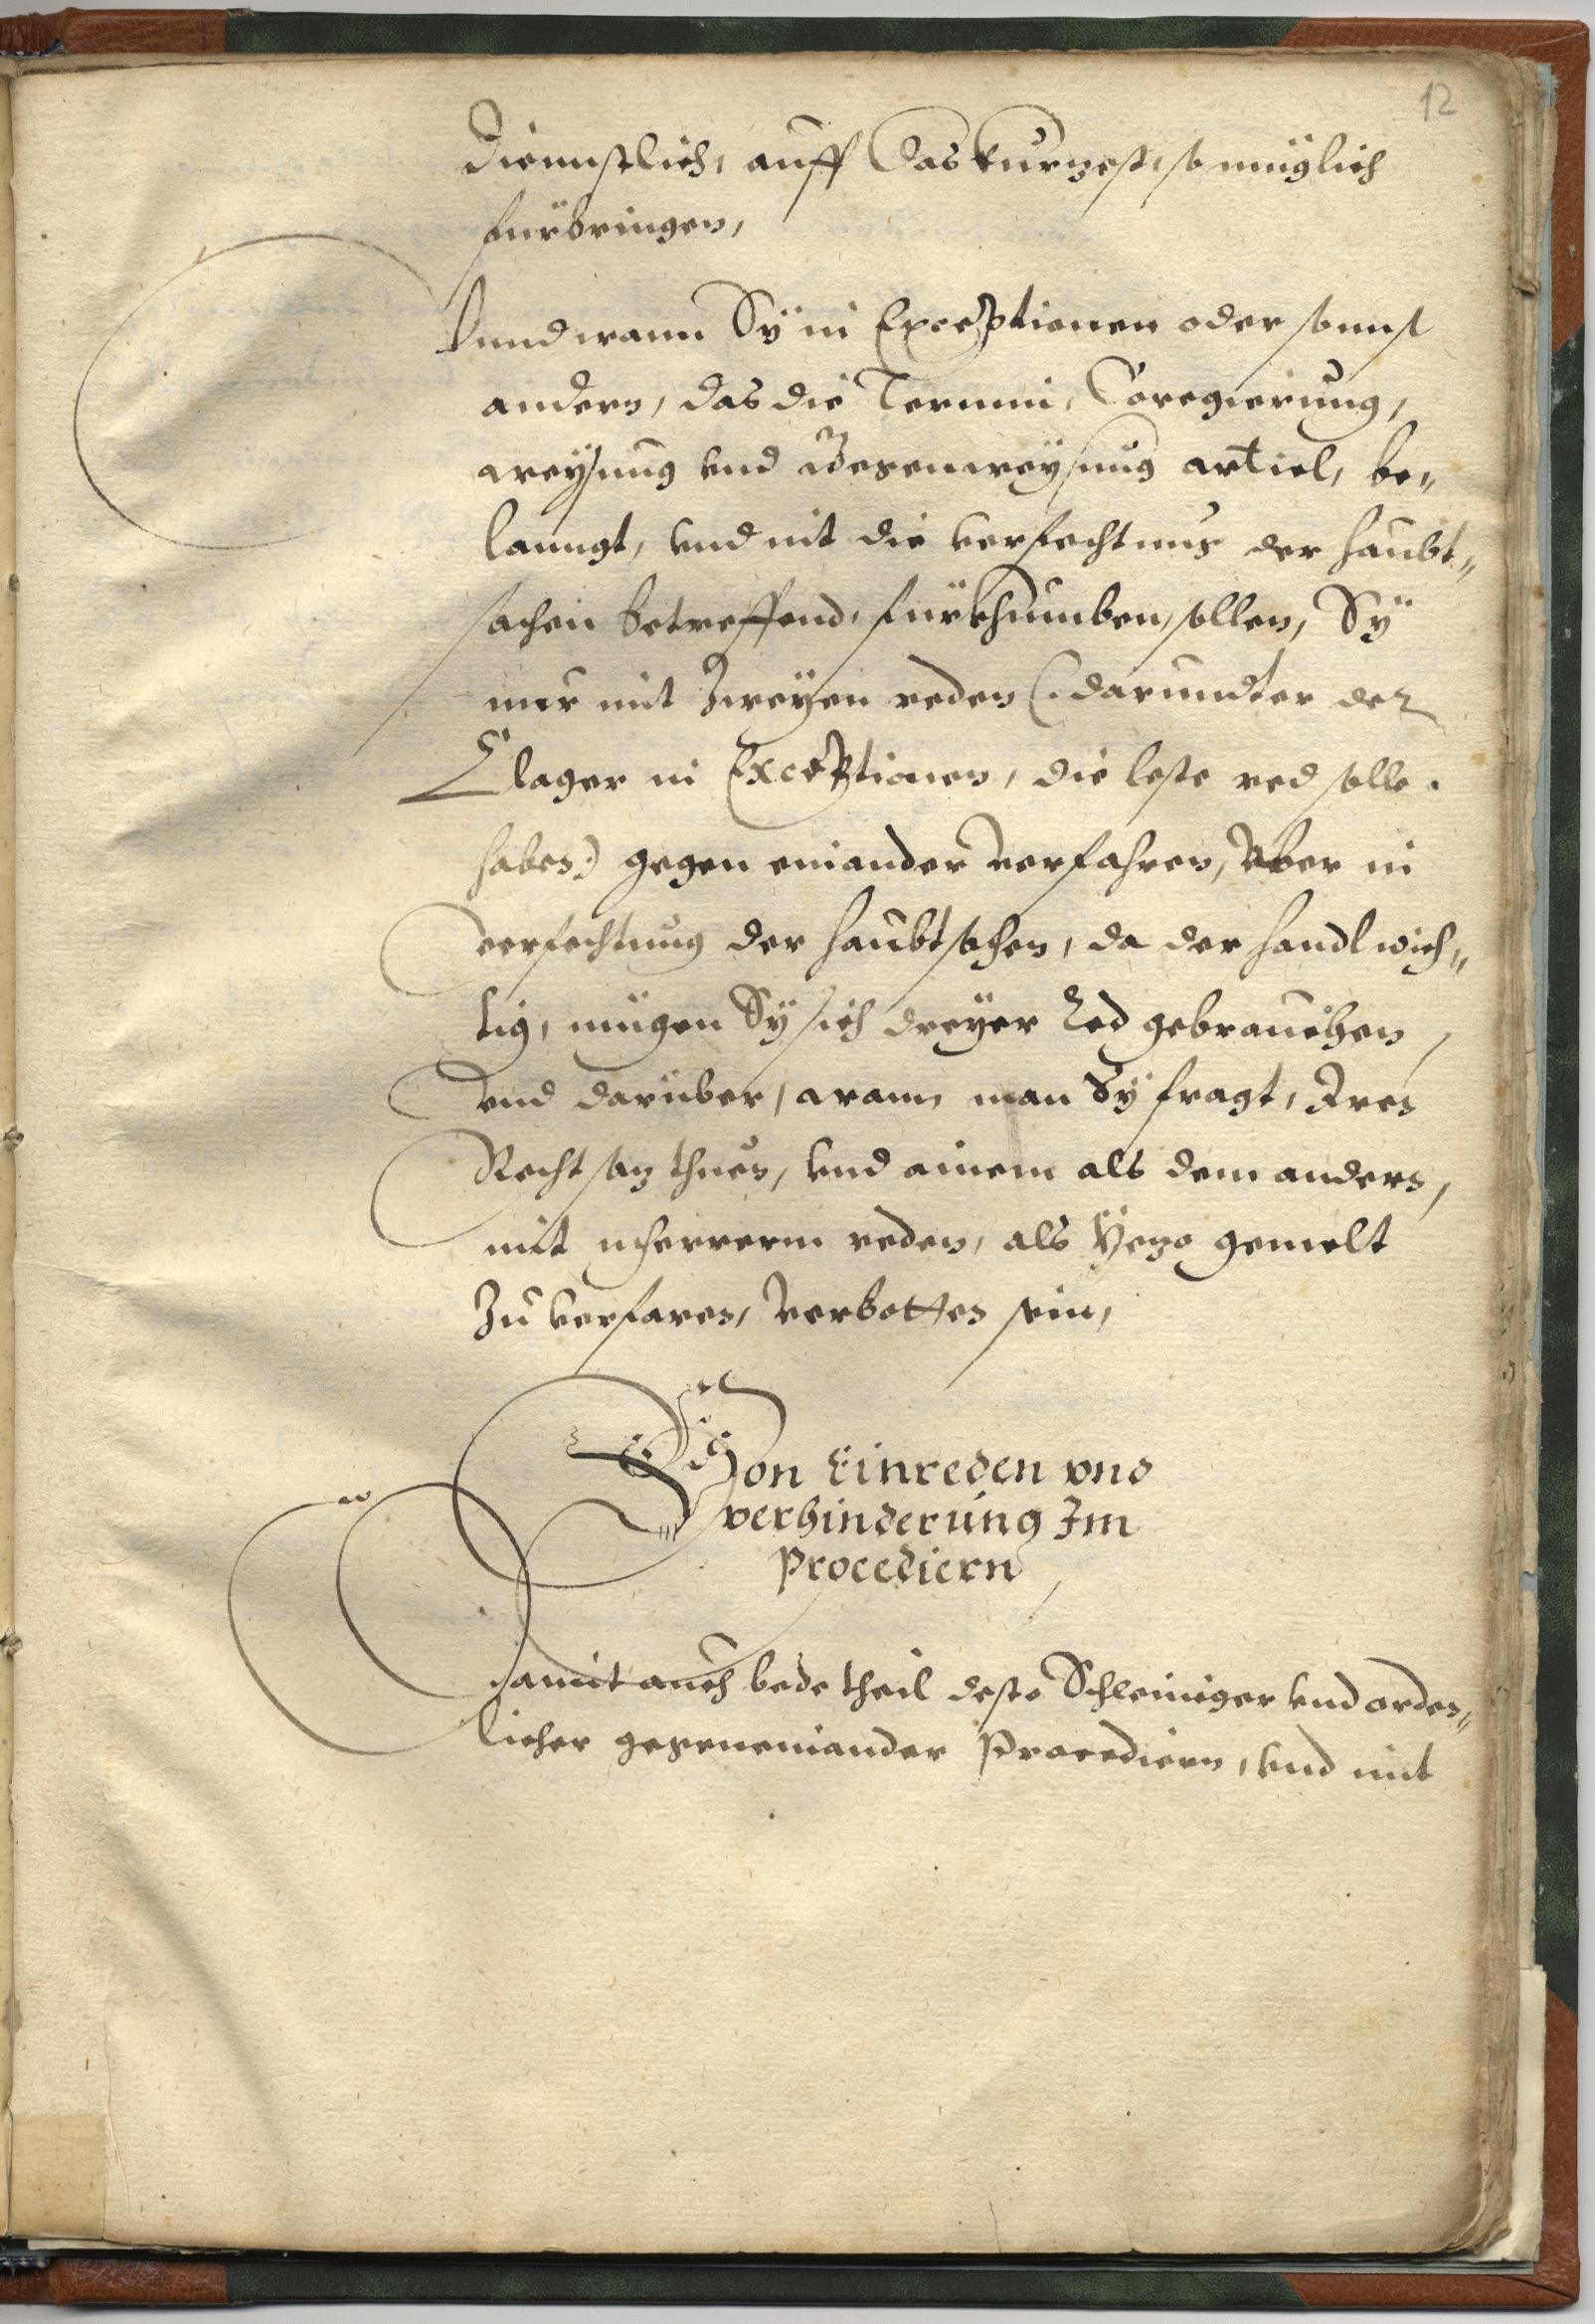 12
diennstlich, auff Das kurtzest, so müglich
fürbringen,
Vnnd wann Sÿ in Exceptionen oder sonnst
andern, das die Termini, Coregierung,
weÿsung vnd Gegenweÿsung articl, be„
lanngt, vnd nit die verfechtnus der haubt„
sachen betreffend, fürkhumben, sollen, Sÿ
nur mit Zweÿen reden (: darundter der
Clager in Exceptionen, die leste red solle
haben :) gegen einander verfahren, Aber in
verfechtung der haubtsachen, da der handl wich„
tig, mügen Sÿ sich dreÿer Red gebrauchen,
vnd darüber, wann man Sÿ fragt, Iren
Rechtsaz thuen, vnd ainem als dem andern,
mit mherrerm reden, als Yezo gemelt
Zu verfaren, verbotten sein,
Von Einreden vnd
verhinderung Im
Procediern,
Damit auch bede theil desto Schleiniger vnd orden„
licher gegeneinander Procediern, vnd mit